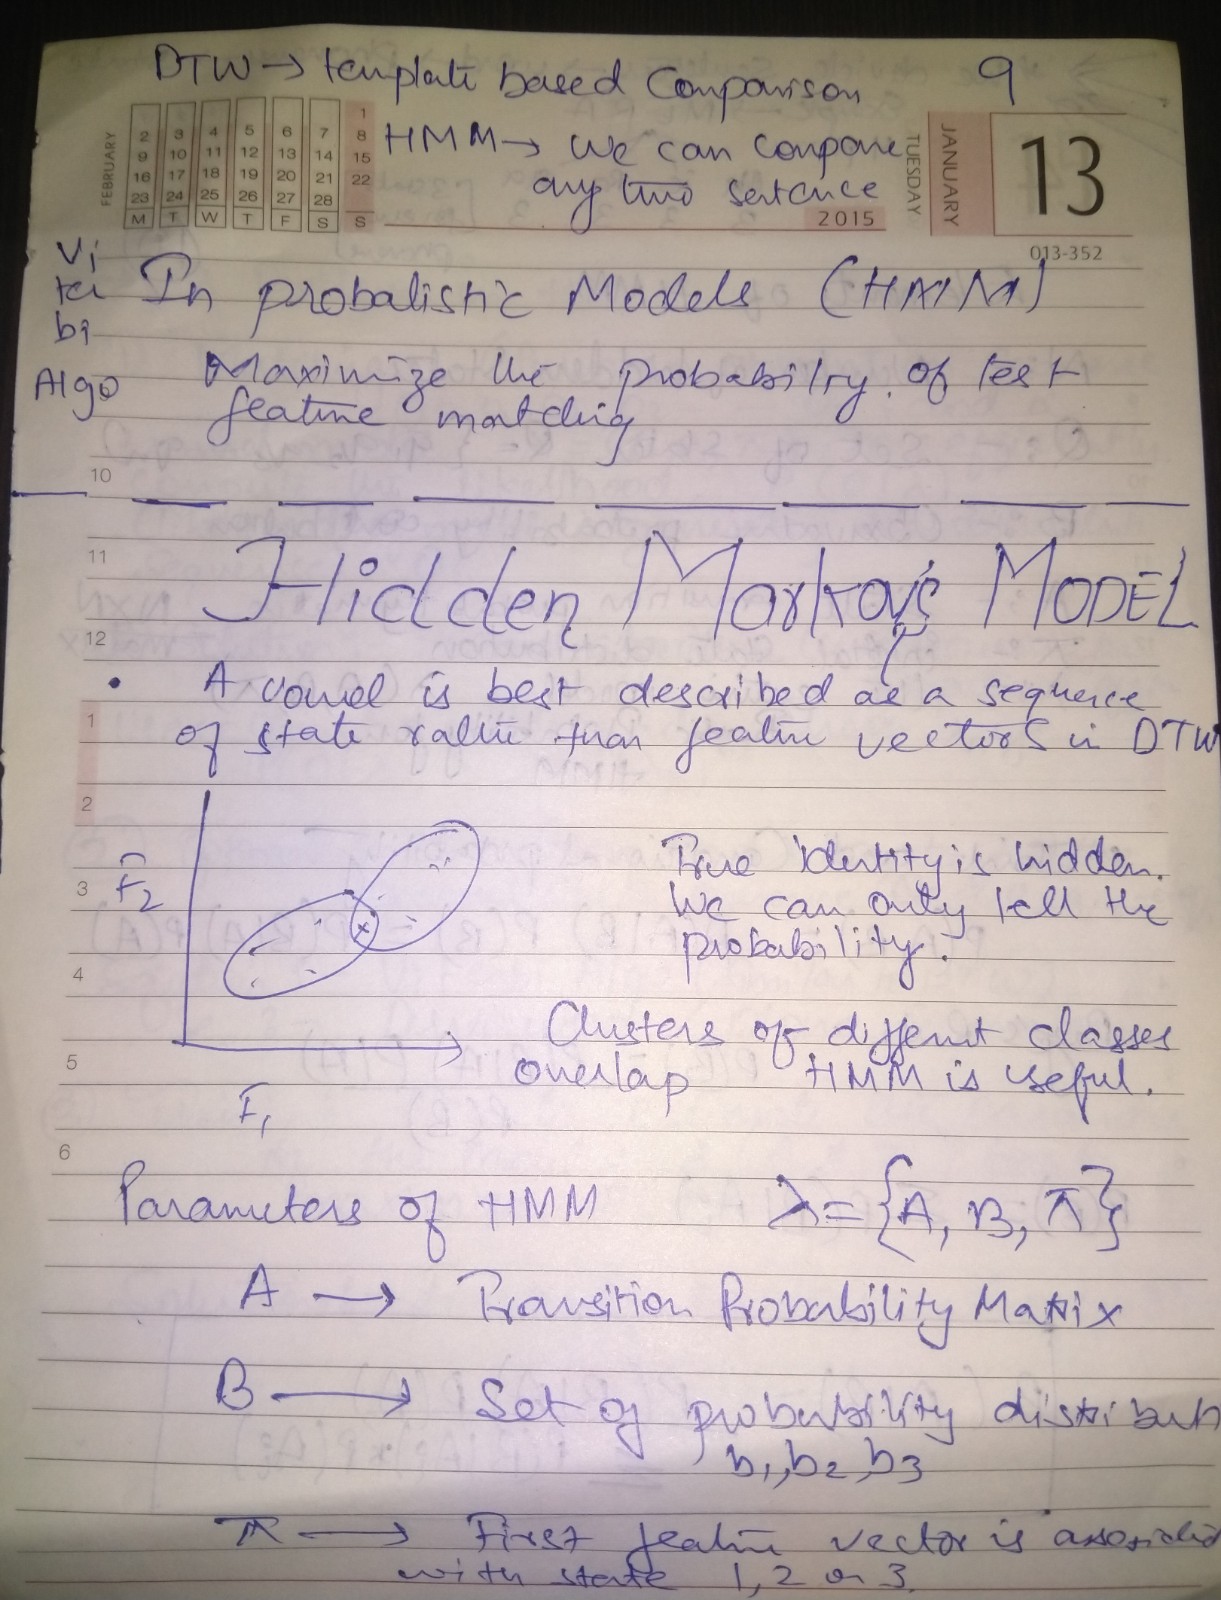 DTW → template based Comparison 9
FEBRUARY
1
2 3 4 5 6 7 8
9 10 11 12 13 14 15
16 17 18 19 20 21 22
23 24 25 26 27 28
M T W T F S S
HMM → We can compare
any two sentence
2015
TUESDAY
JANUARY
13
013-352
Vi
ter
bi
Algo
In probalistic Models (HMM)
Maximize the probability of test
feature matching
10
11
Hidden Markov's MODEL
12
• A vowel is best described as a sequence
1
of state rather than feature vectors in DTW
2
3
F2
True identity is hidden.
We can only tell the
probability.
4
Clusters of different classes
5
overlap HMM is useful.
F1
6
Parameters of HMM λ={A, B, π}
A → Transition Probability Matrix
B → Set of probability distributi
b1, b2, b3
π → First feature vector is associated
with state 1, 2 or 3.